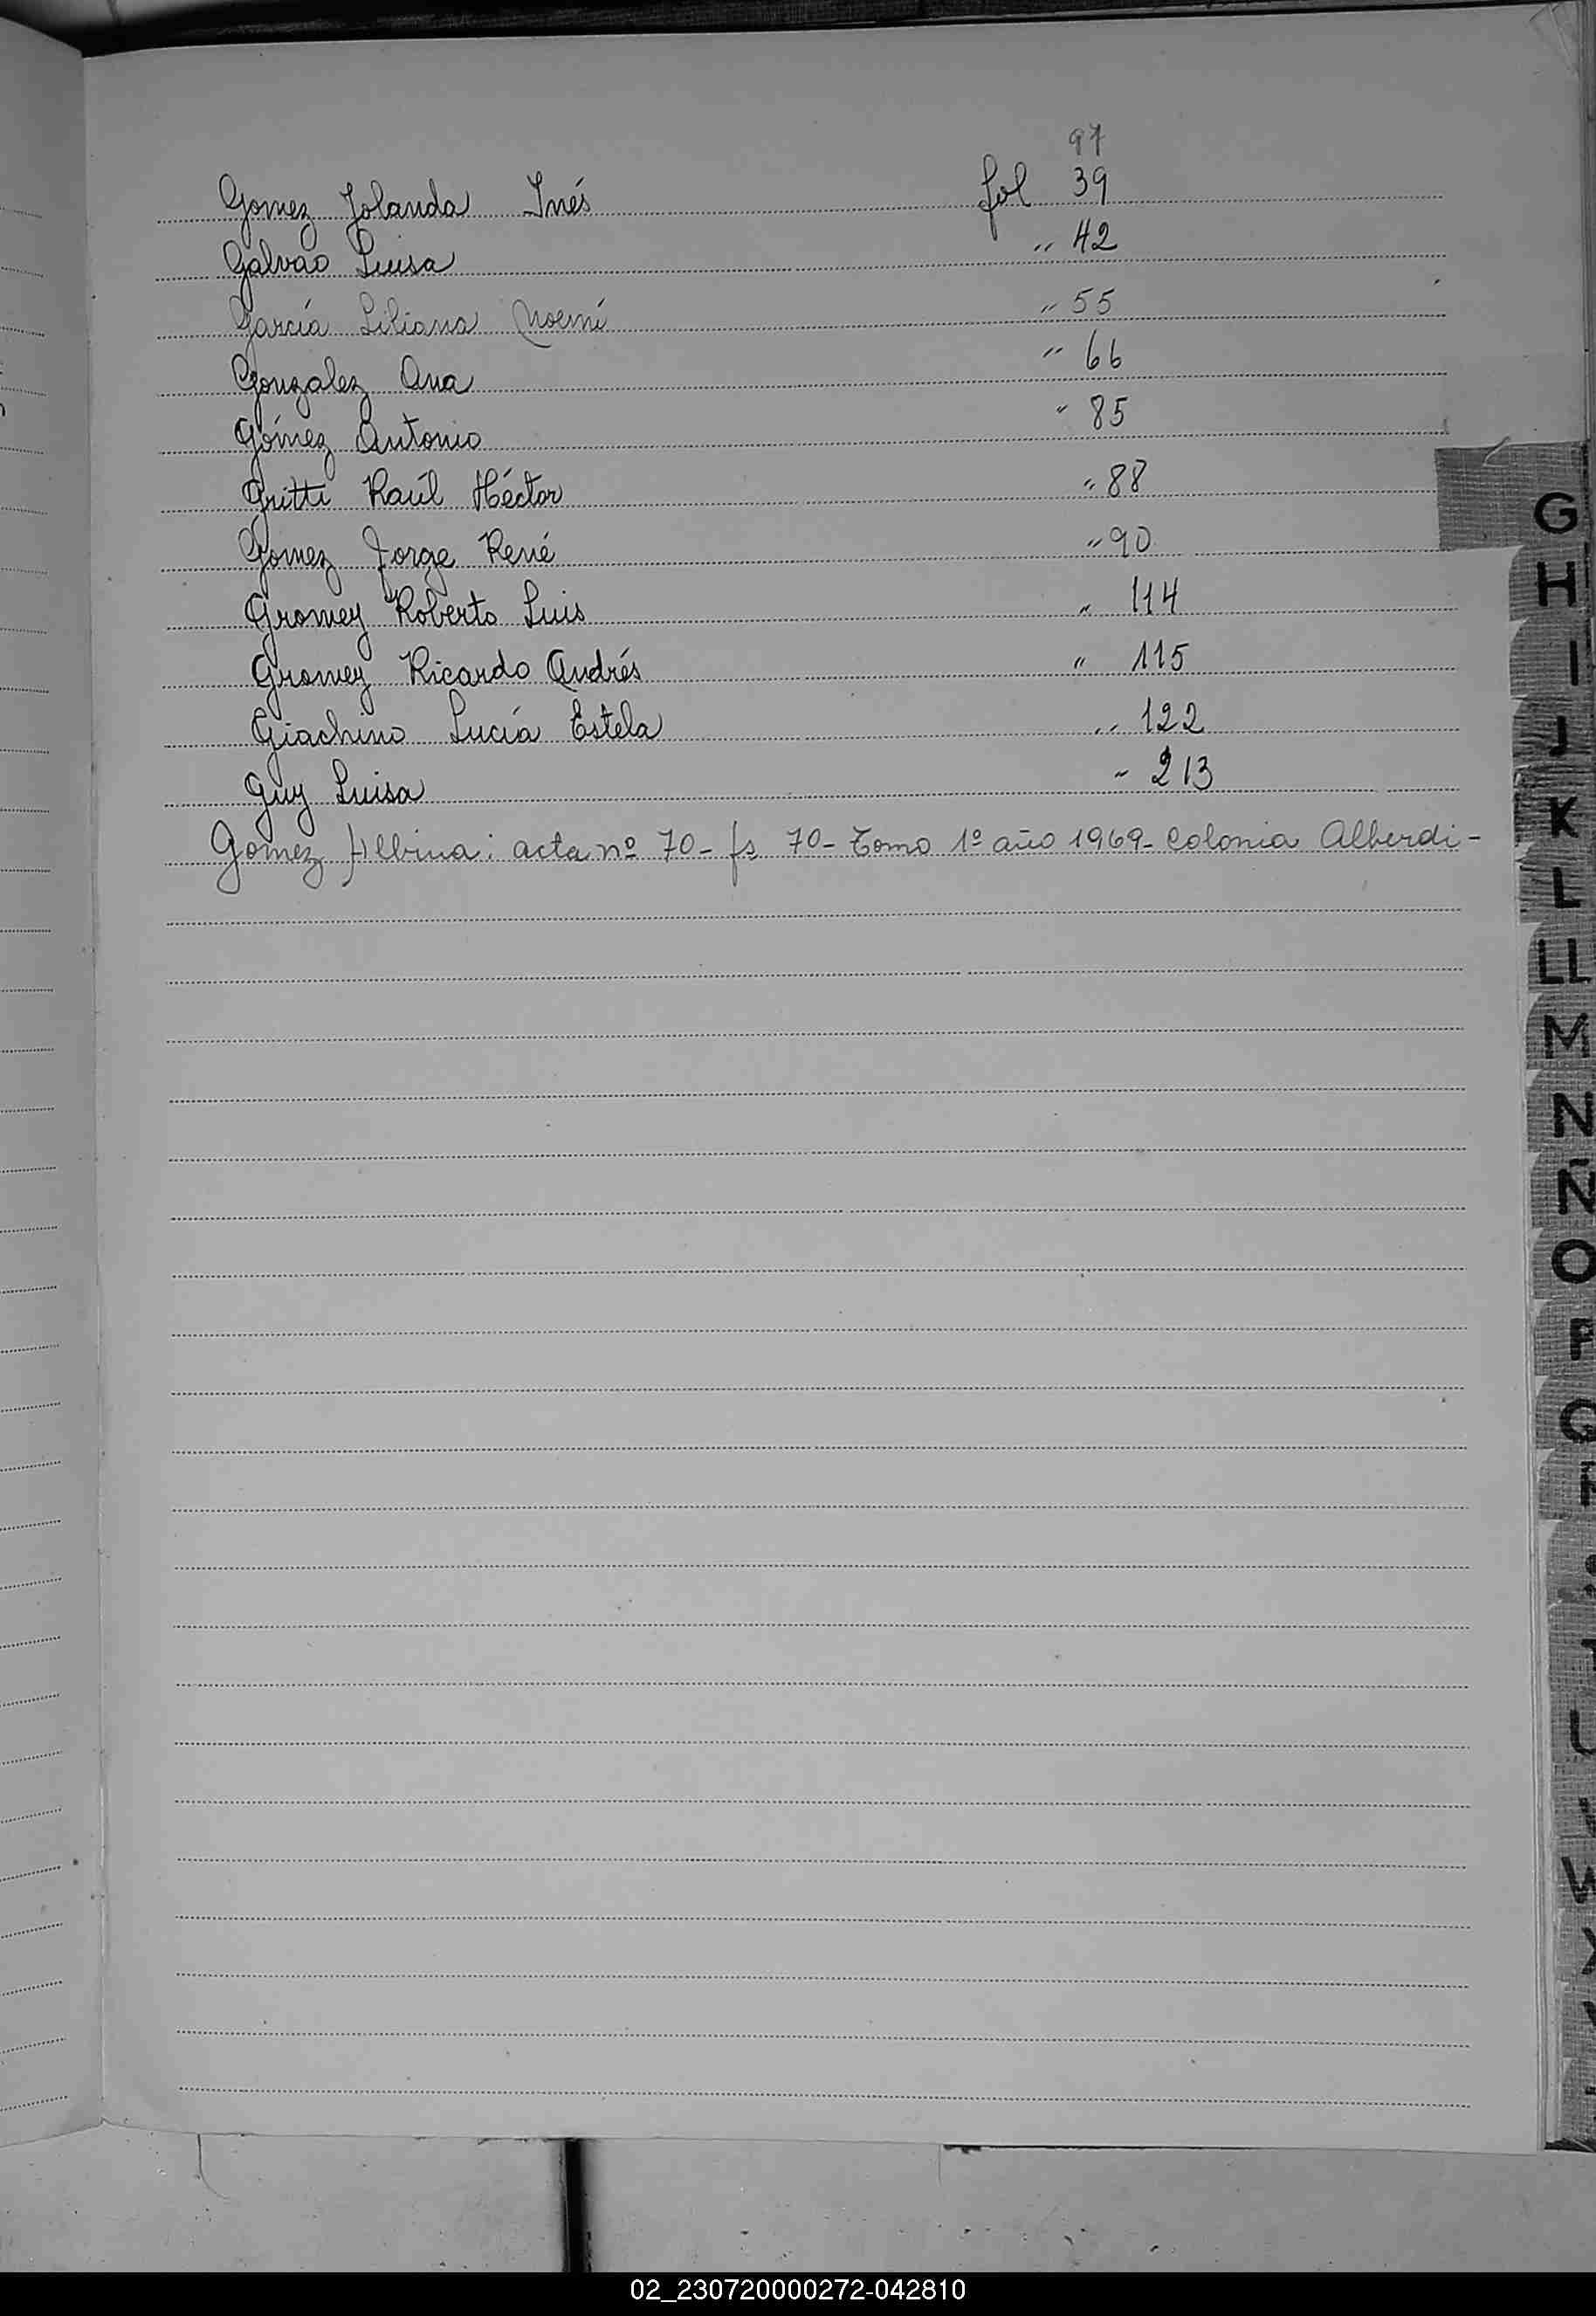 97
Gomez Jolanda Inés fol 39
Galvao Luisa " 42
García Liliana Noemí " 55
Gonzalez Ana " 66
Gómez Antonio " 85
Gritti Raúl Héctor " 88
Gomez Jorge René " 90
Gromey Roberto Luis " 114
Gromey Ricardo Andrés " 115
Giachino Lucía Estela " 122
Guy Luisa " 213
Gomez Albina: acta nº 70- fs 70- Tomo 1º año 1969- Colonia Alberdi-
G
H
I
J
K
L
LL
M
N
Ñ
O
P
Q
R
T
U
V
W
X
02_230720000272-042810